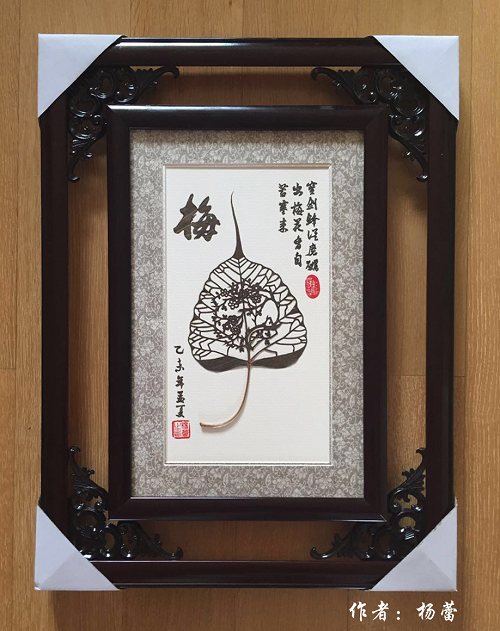 宝剑锋从磨砺
出梅花香自
苦寒来
梅
乙未年孟夏
作者：杨蕾